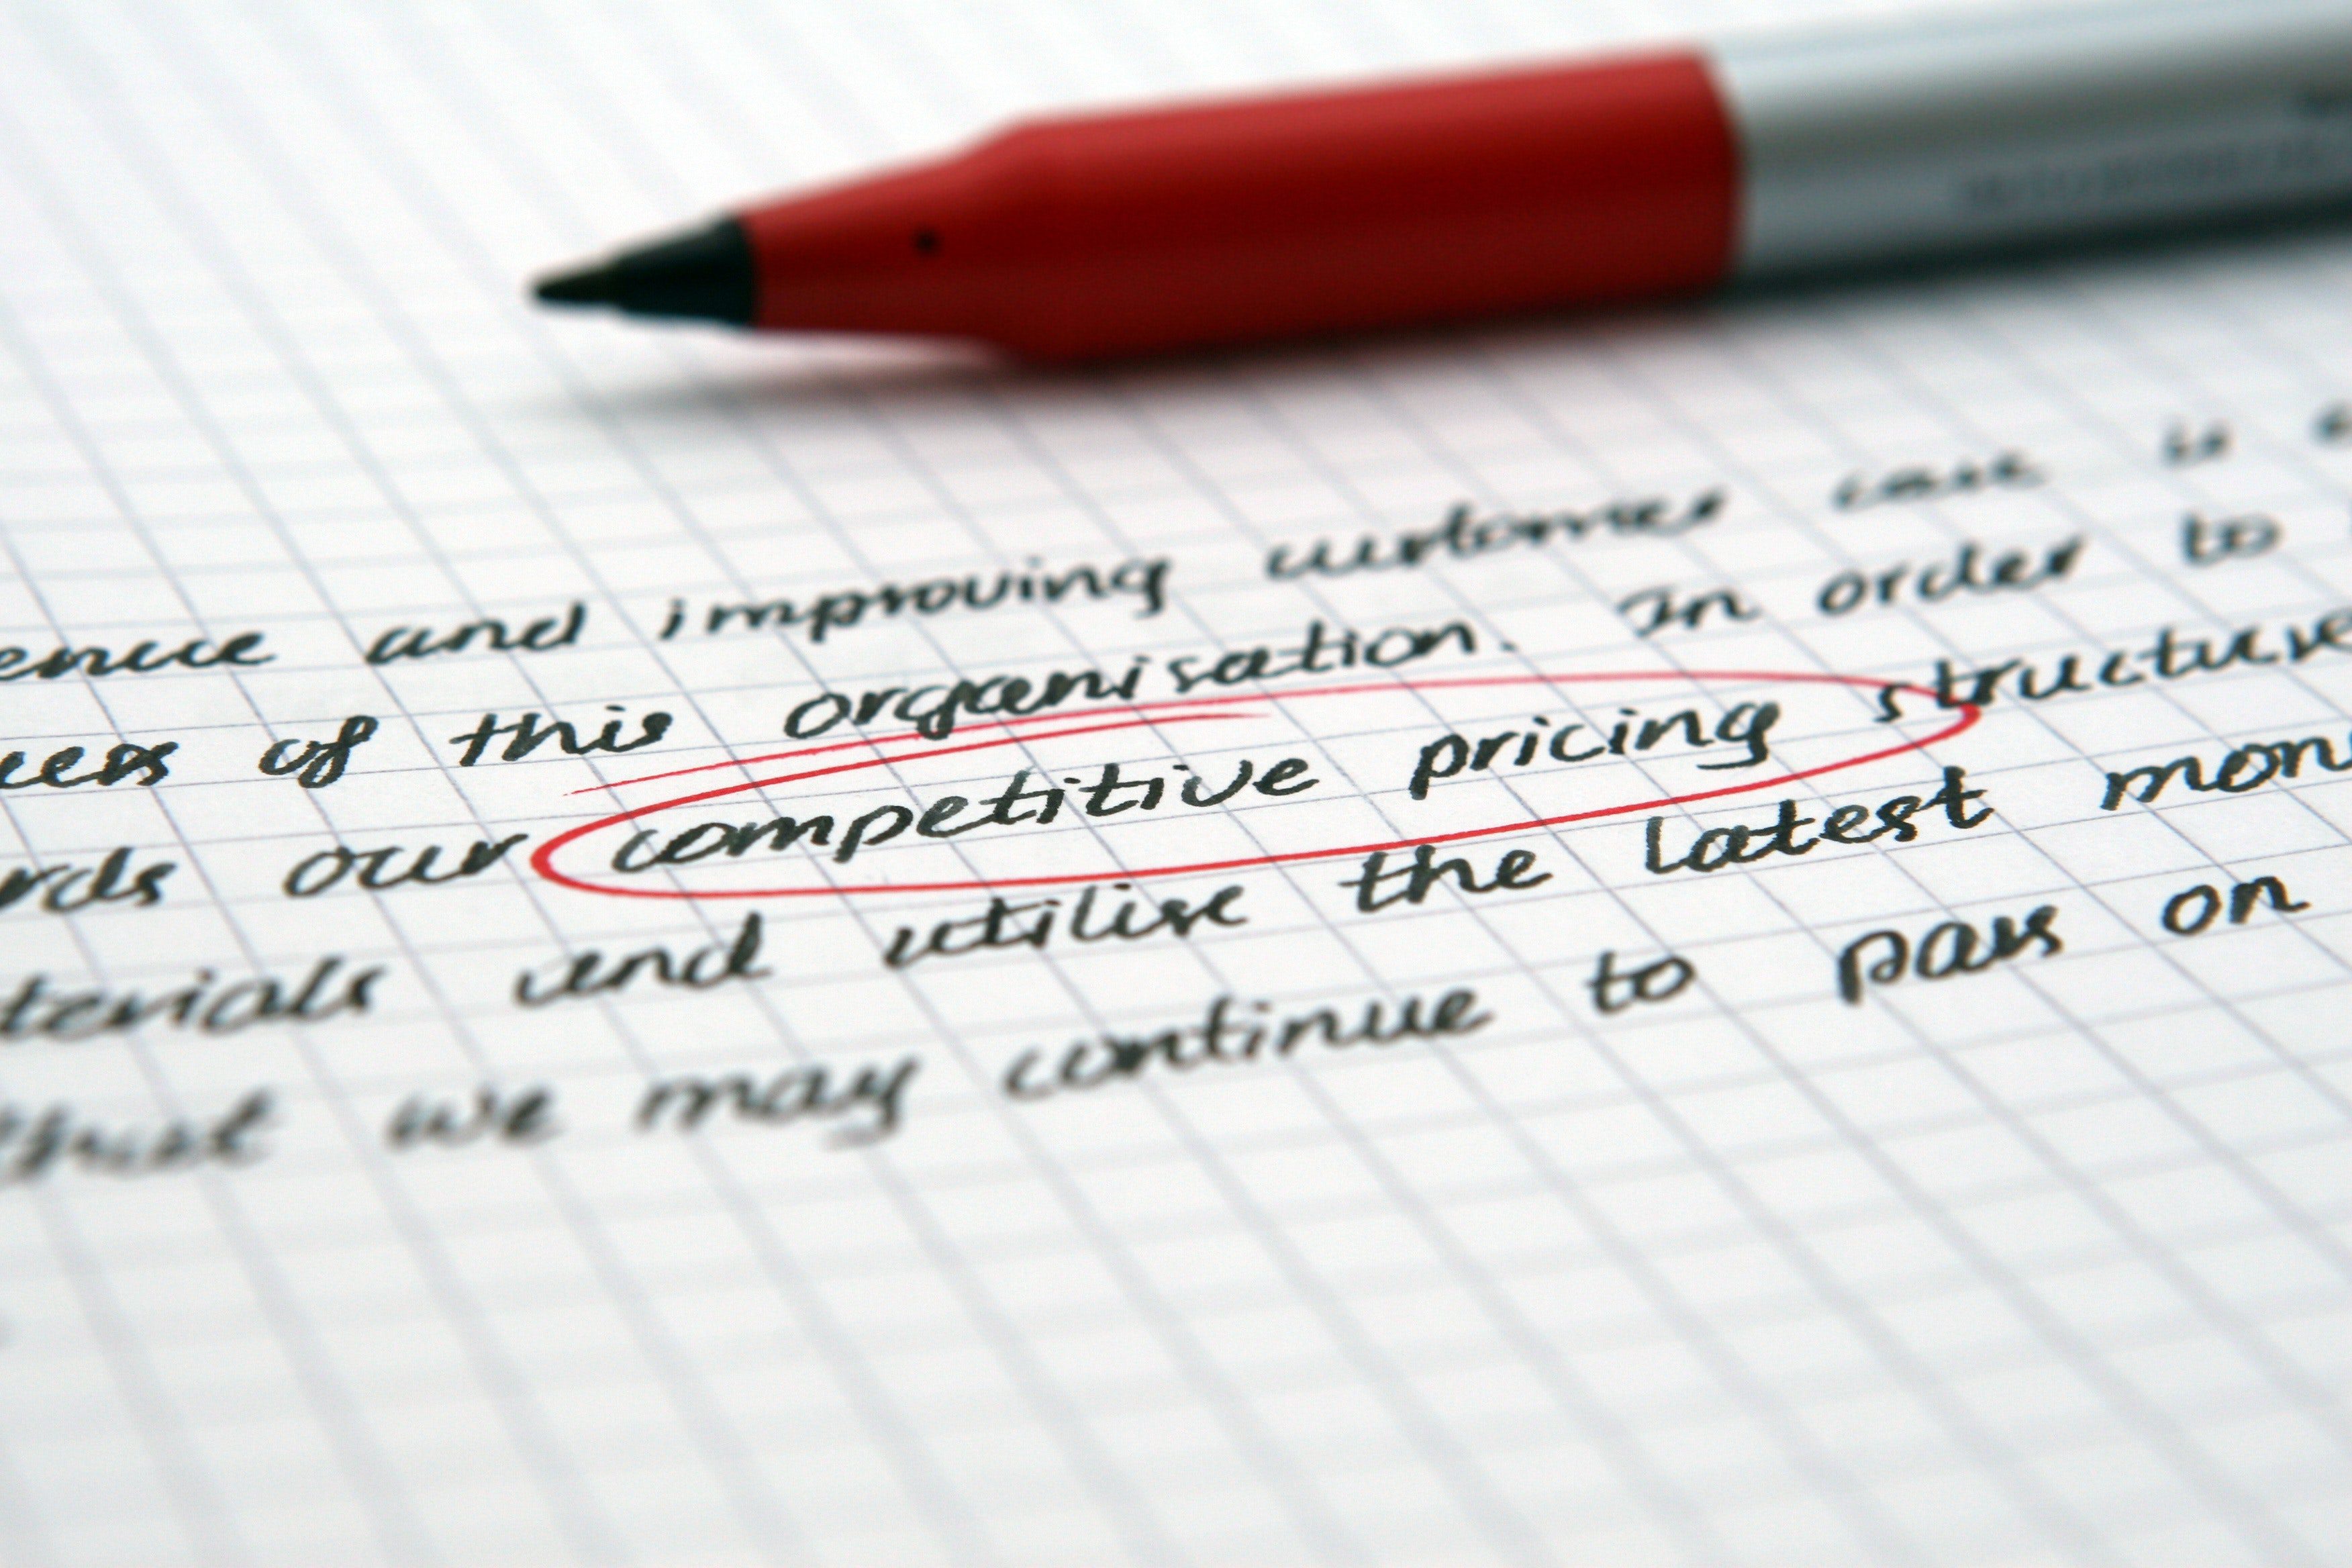 enue and improving customer care is
of this organisation. In order to
our competitive pricing structure
and utilise the latest
that we may continue to pass on